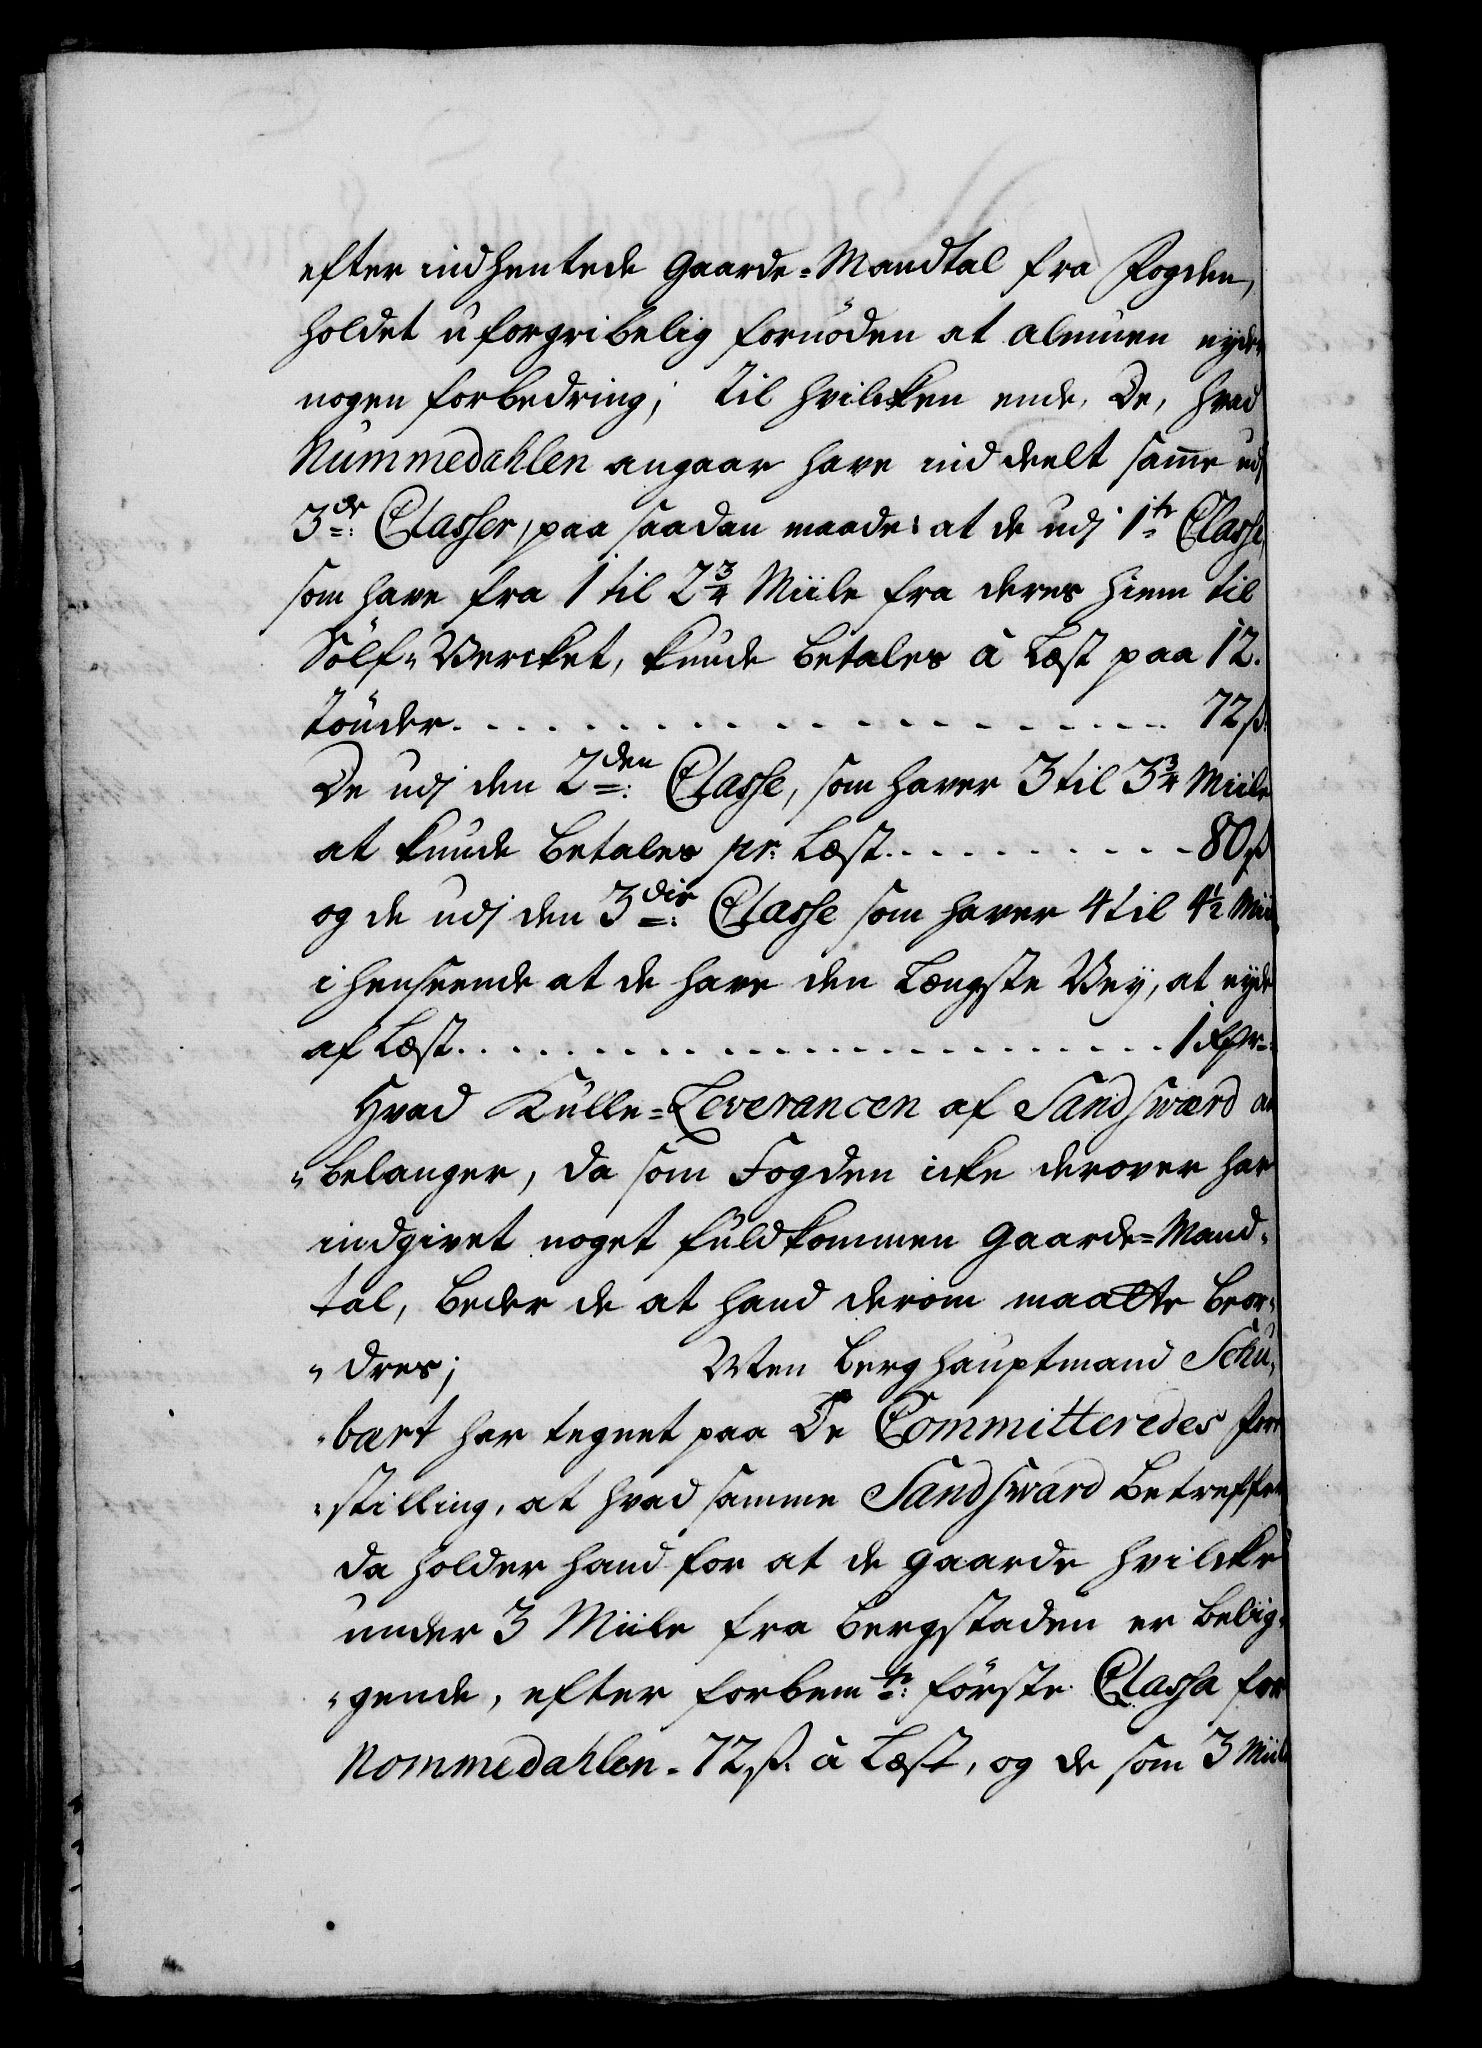 efter indhentede Gaarde-Mandtal fra Fogden,
holdet uforgribelig fornöden at almuen nyder
nogen forbedring; til hvilcken ende, De, hvad
Nummedahlen angaar have inddeelt samme udj
3de: Classer, paa saadan maade: at de udj 1te Classe,
som have fra 1 til 2 3/4 Miile fra deres Hiem til
Sölf-Vercket, kunde betales à Læst paa 12.
Tönder. . . . . . . . . . . . . . . . . . . . . . . 72 ß.
De udj den 2den: Classe, som haver 3 til 3 3/4 Miile
at kunde betales pr: Læst. . . . . . . . . . . 80 ß
og de udj den 3die: Classe som haver 4 til 4 1/2 Mii
i henseende at de have den Længste Vey, at nyde
af Læst. . . . . . . . . . . . . . . . . . . . . . . . . 1 Rdr-
Hvad Kulle-Leverancen af Sandsværd an
"belanger, da som Fogden icke derover har
indgivet noget fuldkommen Gaarde-Mand-
tal, beder de at hand derom maatte beor-
"dres; Men Berghauptmand Schu-
"bært har tegnet paa De Committeredes fore
"stilling, at hvad samme Sandsværd betreffer
da holder hand for at de gaarde hvilcke
under 3 Miile fra Bergstaden er belig-
"gende, efter forbemte: förste Classa for
Nommedahlen - 72 ß. à Læst, og de som 3 Miile